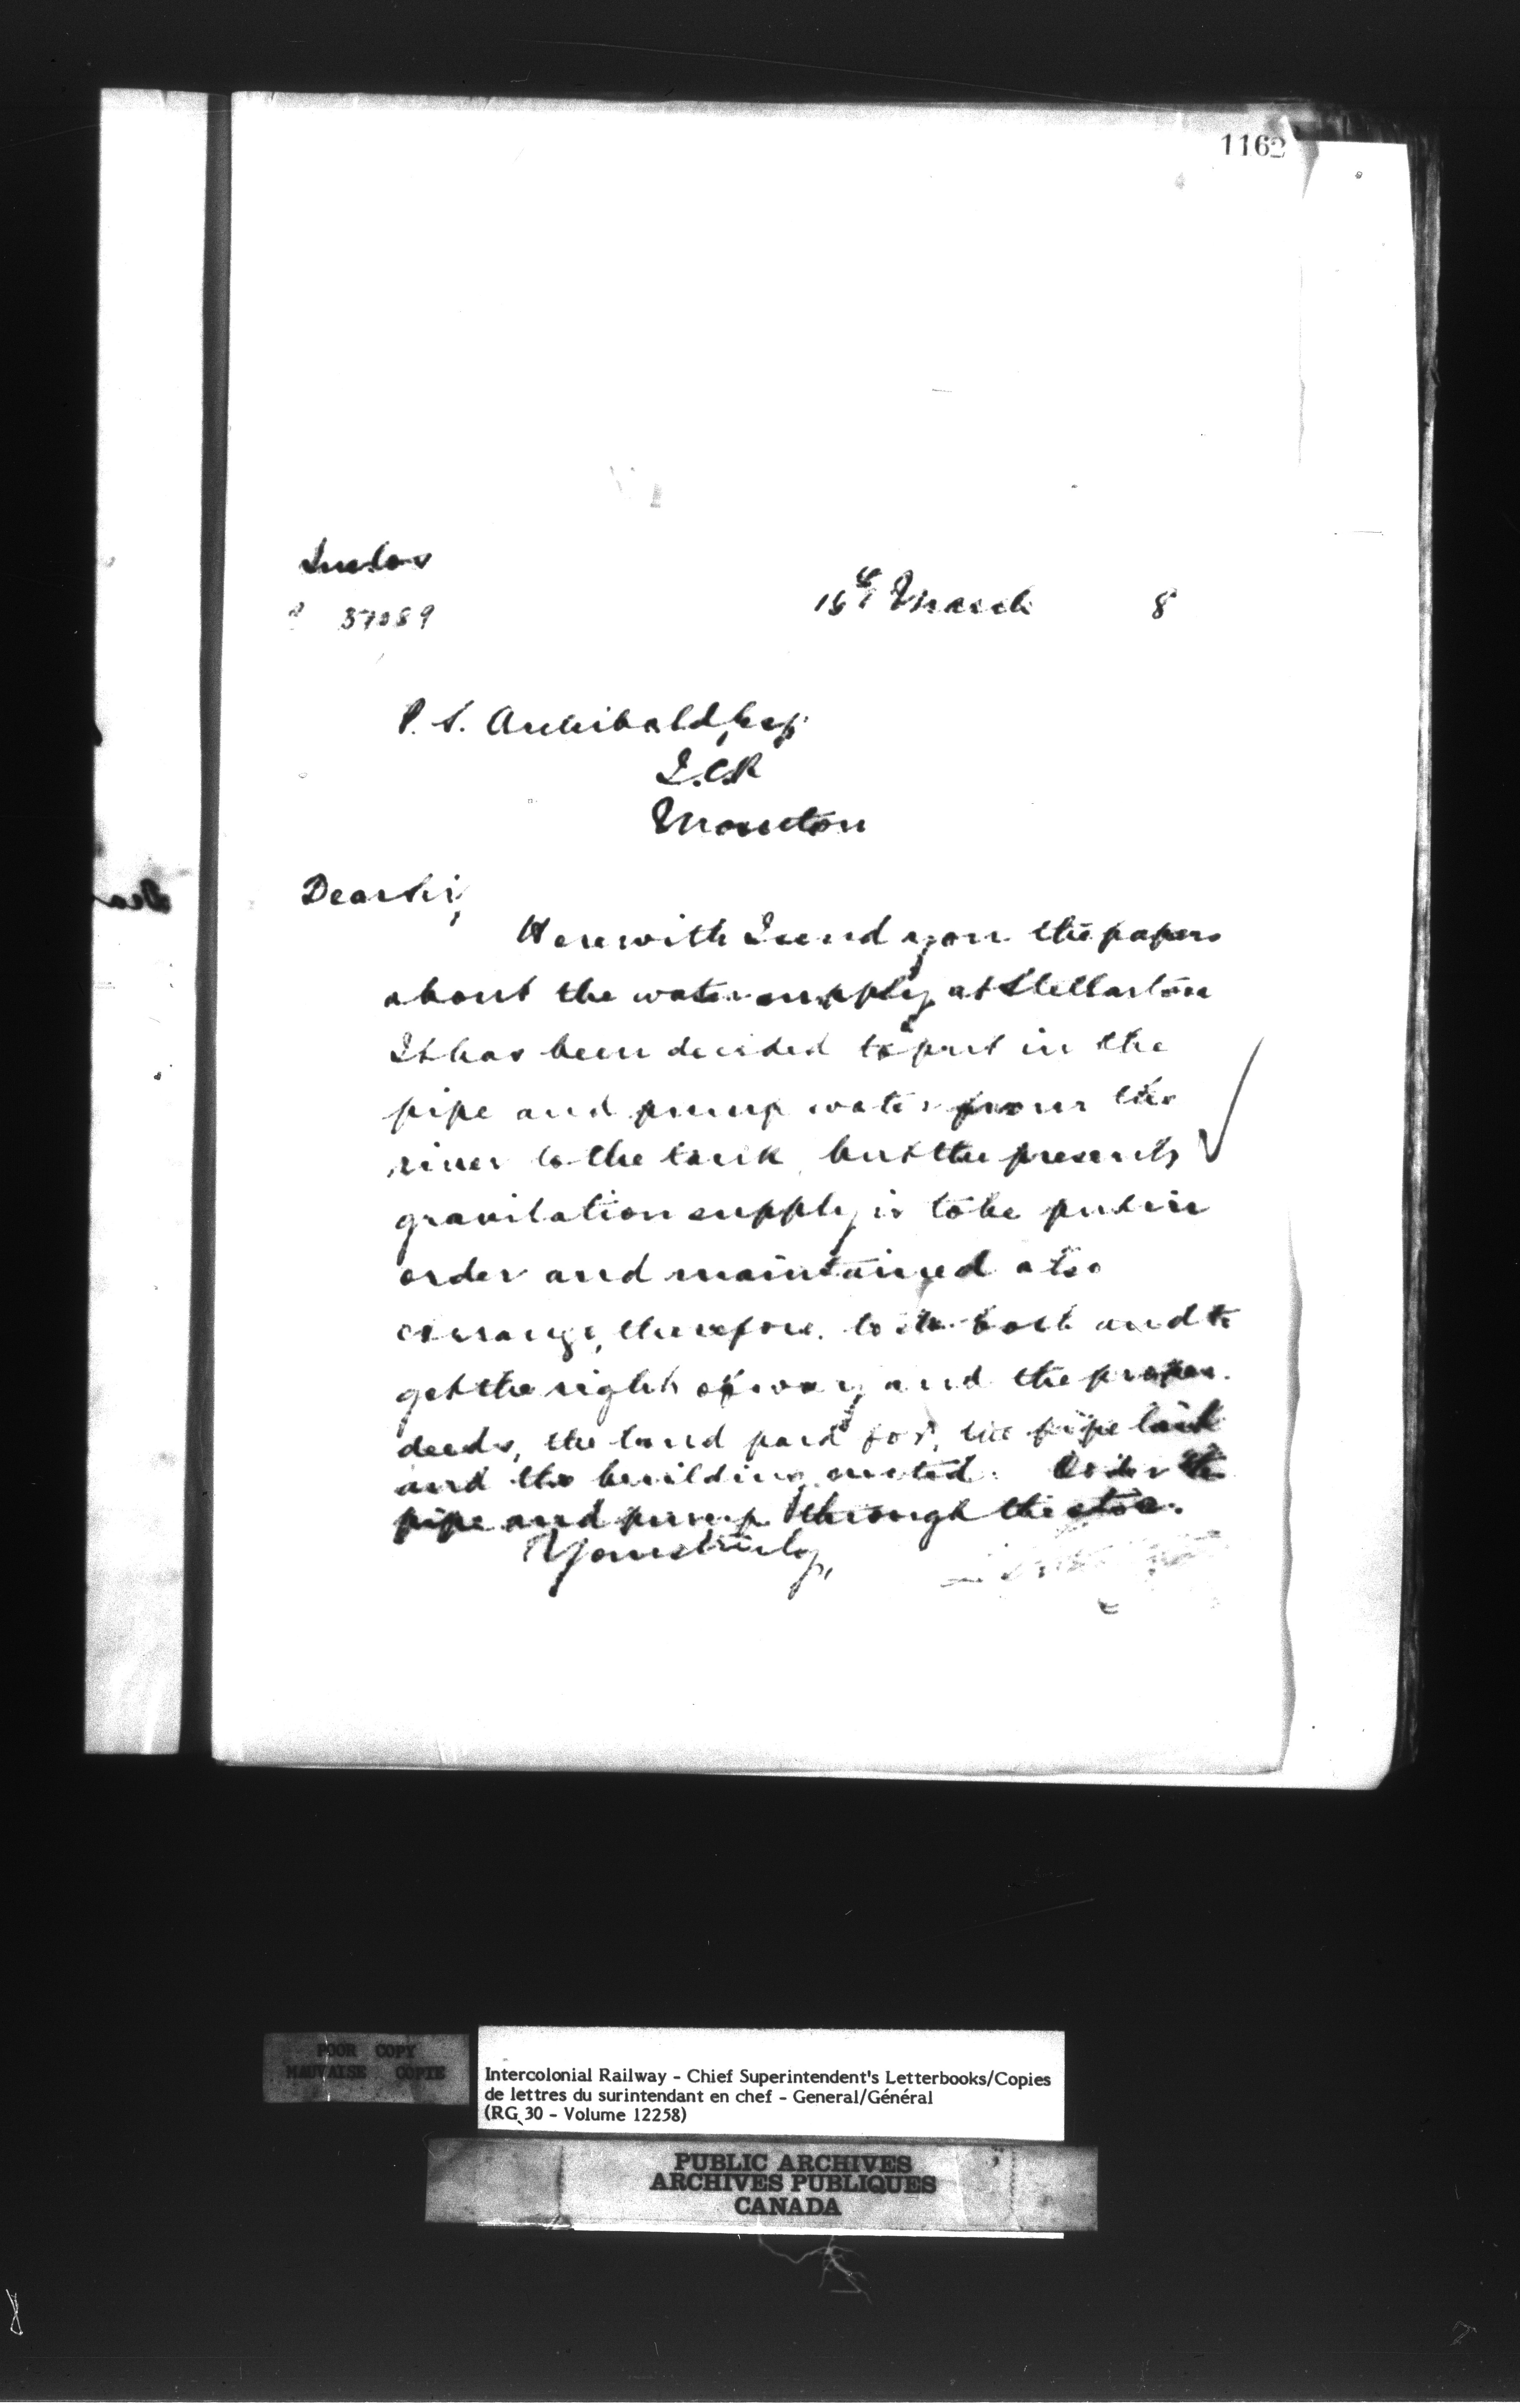 1162
Inclos
37089
16th March 8
P. S. Archibald, Esq.
I.C.R
Moncton
Dear Sir,
Herewith I send you the papers
about the water supply at Stellarton
It has been decided to put in the
pipe and pump water from the
river to the tank, but the present
gravitation supply is to be put in
order and maintained also
arrange, therefore, to do both and to
get the right of way and the proper
deeds, the land paid for, the pipe laid
and the building erected. Order the
pipe and pump through the store.
Yours truly,
POOR COPY
MAUVAISE COPIE
Intercolonial Railway - Chief Superintendent's Letterbooks/Copies
de lettres du surintendant en chef - General/Général
(RG 30 - Volume 12258)
PUBLIC ARCHIVES
ARCHIVES PUBLIQUES
CANADA